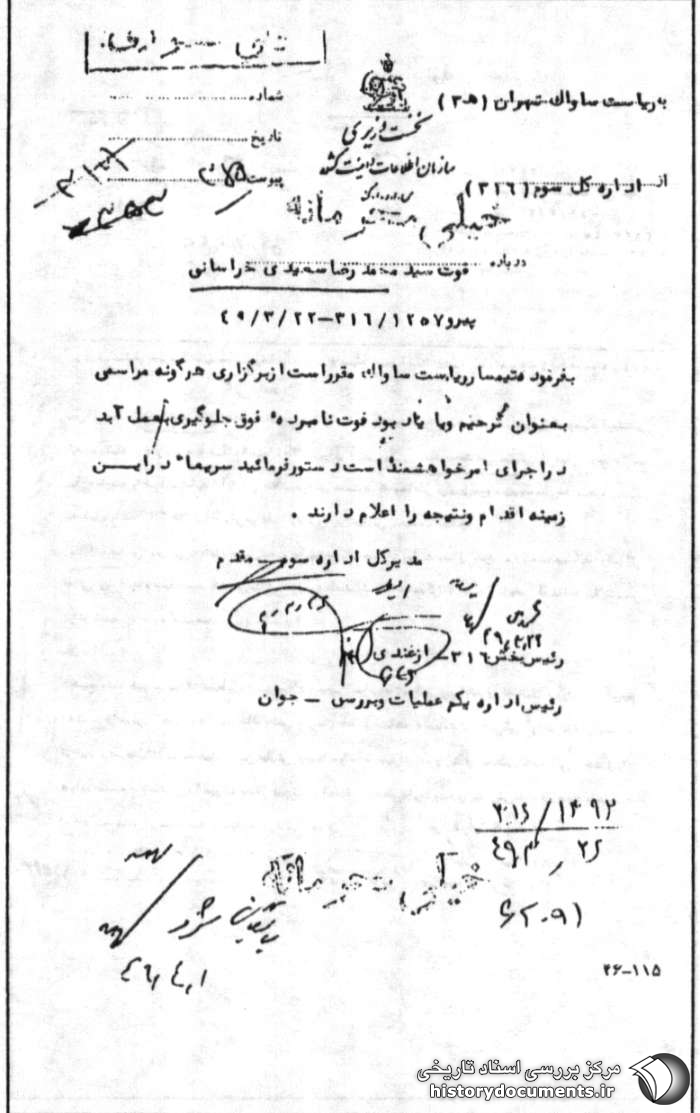 به ریاست ساواک تهران (۳ه‍)
شماره
نخست وزیری
تاریخ
سازمان اطلاعات و امنیت کشور
پیوست
از اداره کل سوم (۳۱۶)
خیلی محرمانه
درباره فوت سید محمد رضا سعیدی خراسانی
پیرو ۳۱۶/۱۲۵۷-۴۹/۳/۲۲
بفرموده تیمسار ریاست ساواک مقرر است از برگزاری هرگونه مراسمی
بعنوان ترحیم و یا یاد بود فوت نامبرده فوق جلوگیری بعمل آید
در اجرای امر خواهشمند است دستور فرمائید سریعا" در این
زمینه اقدام و نتیجه را اعلام دارند .
مدیرکل اداره سوم - مقدم
رئیس بخش ۳۱۶- ازغندی
رئیس اداره یکم عملیات و بررسی - جوان
۳۱۶/۱۴۹۲
خیلی محرمانه
بایگانی شود
۴۹،۴،۱
۲۶-۱۱۵
مرکز بررسی اسناد تاریخی
historydocuments.ir